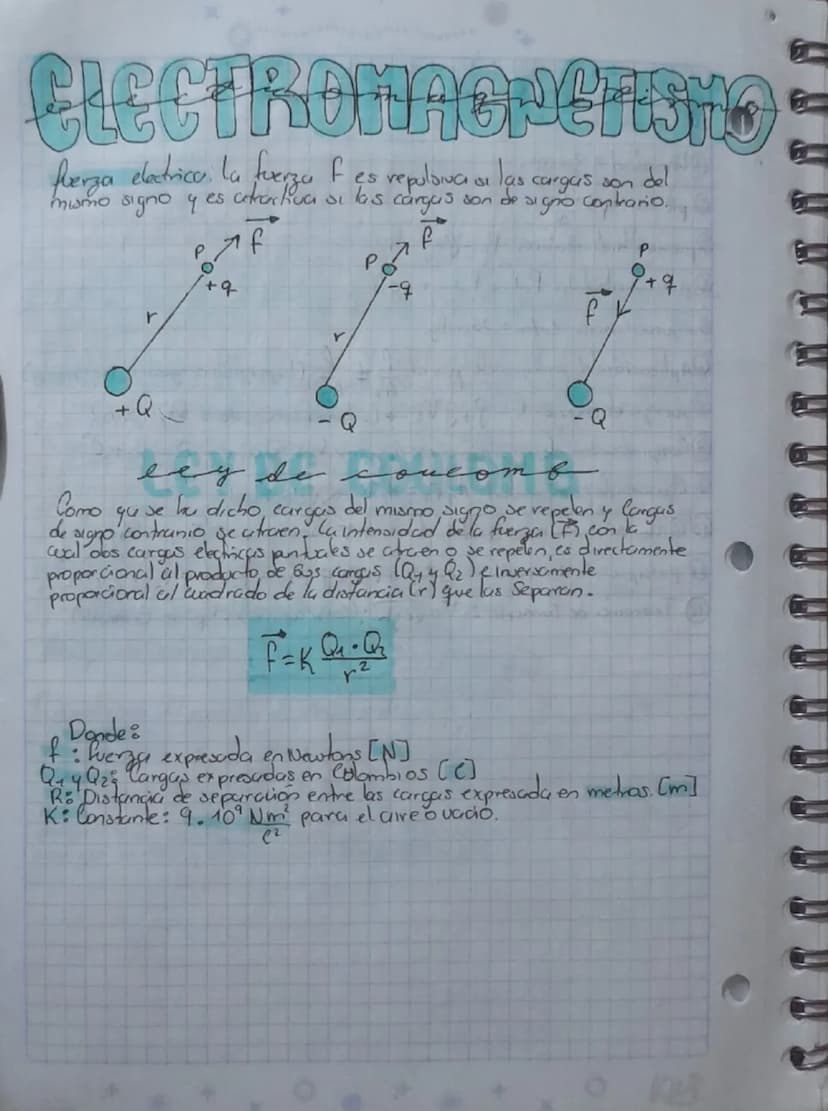 ELECTROMAGNETISMO
fuerza electrica. La fuerza f es repulsiva si las cargas son del
mismo signo y es atractiva si las cargas son de signo contrario.
P f
+q
r
+Q
P f
-q
r
-Q
P
+q
f
-Q
LEY DE COULOMB
ley de coulomb
Como que se ha dicho, cargas del mismo signo se repelen y cargas
de signo contrario se atraen. La intensidad de la fuerza (F) con la
cual dos cargas electricas puntuales se atraen o se repelen, es directamente
proporcional al producto de sus cargas (Q1 y Q2) e inversamente
proporcional al cuadrado de la distancia (r) que las separan.
f = K Q1 · Q2 / r²
Donde:
f: fuerza expresada en Newtons [N]
Q1 y Q2: Cargas expresadas en Colombios [C]
R: Distancia de separación entre las cargas expresada en metros. [m]
K: Constante: 9. 10⁹ Nm²/c² para el aire o vacio.